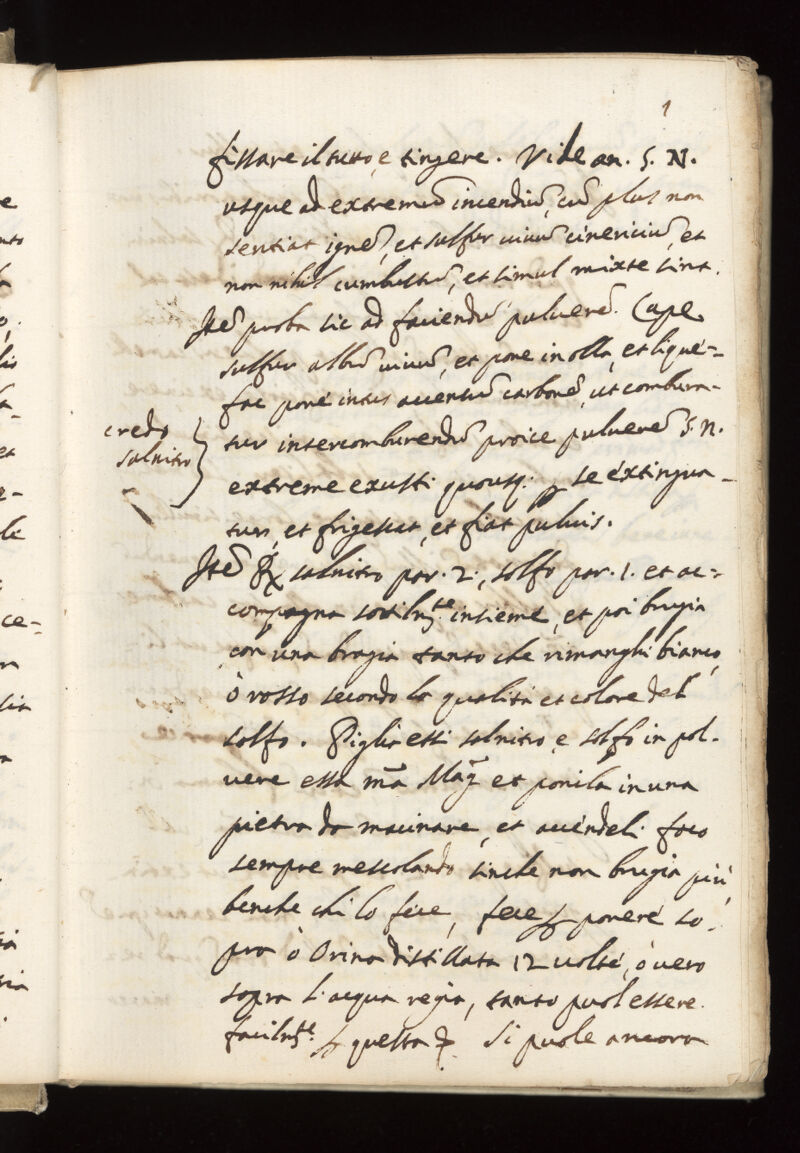 1
fissare il tutto, e tingere. Vide an. S. N.
usque ad extremũ incendiũ, cũ plus non
sentiat ignẽ, et sulfur uiuũ cinericiũ, et
non nihil cumbustũ, et simul mixte sint.
Itẽ proba sic ad faciendũ puluerẽ. Cape
sulfur albũ uiuũ, et pone in olla, et lique-
fac pone intus accensũ carbonẽ, ut combura-
tur intercomburendũ proice puluerẽ S. N.
credo
salnitro
extreme exusti quousq; se extingua-
tur, et frigescat, et fiat puluis.
Itẽ ℞ salnitro par. 2., solfo par. 1. et ac-
compagna sottilmte insieme, et poi brugia
con una bragia tanto che rimanghi bianco,
ò rosso secondo la qualità et colore del
solfo. Piglia essi salnitro, e solfo in pol-
uere essa mã et ponila in una
pietra da macinare, et accendeli foco
sempre mescolando sinche non brugia più,
benche chi lo fece, fece ponere so-
pra ò Orina distillata 12 uolte, ò uero
sopra l'acqua regia, tanto puol essere
facilmte. questa Si puole ancora